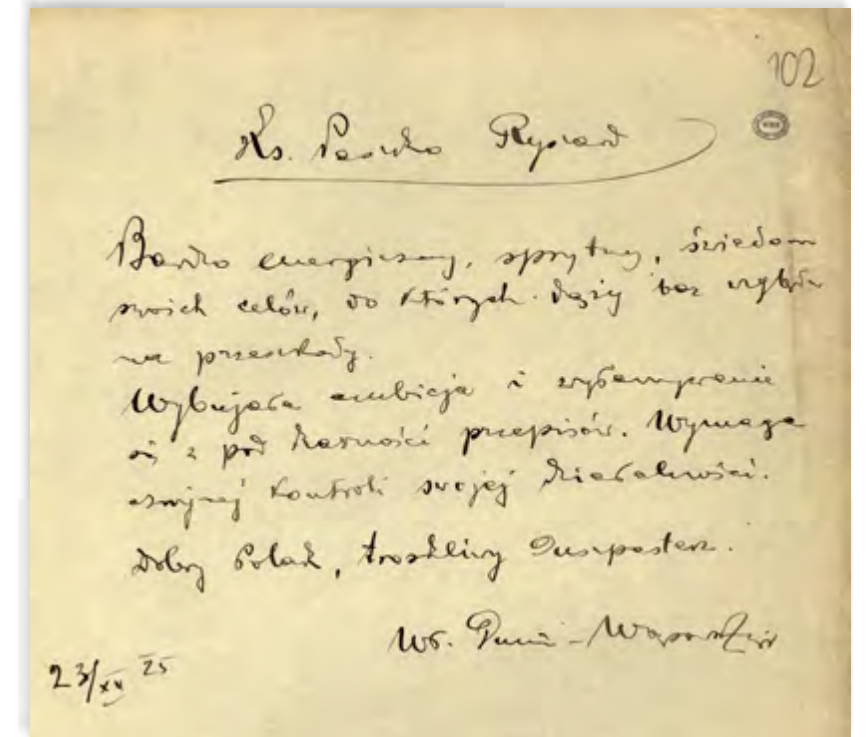 102
Ks. Paszko Ryszard
Bardzo energiczny, sprytny, świadom
swoich celów, do których dąży bez względu
na przeszkody.
Wybujała ambicja i wyłamywanie
się z pod karności przepisów. Wymaga
czujnej kontroli swojej działalności.
Dobry Polak, troskliwy duszpasterz.
Wł.
23/XII 25